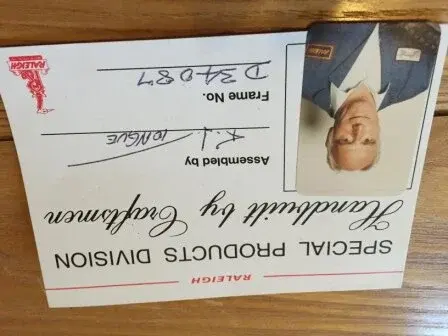 RALEIGH
SPECIAL PRODUCTS DIVISION
Handbuilt by Craftsmen
Assembled by
TONGUE
Frame No.
D34087
RALEIGH
RALEIGH